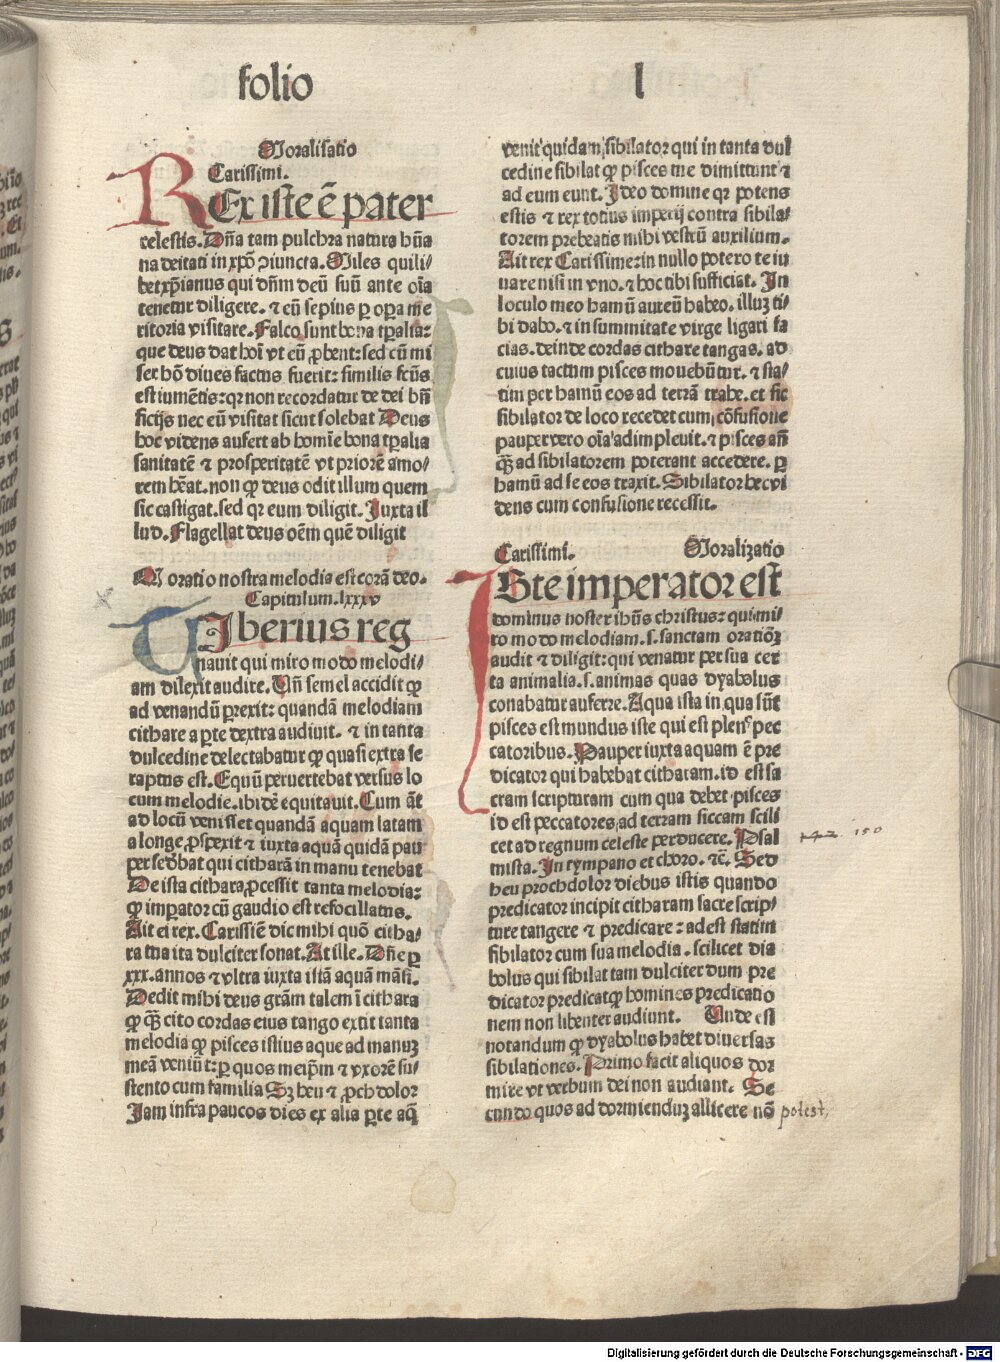 folio l
Moralisatio
Carissimi.
REx iste ē pater
celestis. Dn̄a tam pulchra natura hūa
na deitati in xp̄o ꝯiuncta. Miles quili⸗
bet xp̄ianus qui dn̄m deū suū ante oīa
tenetur diligere. ⁊ eū sepius ꝑ oꝑa me
ritoria visitare. Falco sunt bona tꝑalia:
que deus dat hoī vt eū ꝓbent: sed cū mi
ser hō diues factus fuerit: similis fc̄us
est iumētis: qꝛ non recordatur de dei bn̄
ficijs nec eū visitat sicut solebat Deus
hoc videns aufert ab homīe bona tꝑalia
sanitatē ⁊ prosperitatē vt priorē amo⸗
rem hēat. non ꝙ deus odit illum quem
sic castigat. sed qꝛ eum diligit. Iuxta il
lud. Flagellat deus oēm quē diligit
Moratio nostra melodia est corā deo.
Capitulum. lxxxv
TIberius reg
nauit qui miro modo melodi⸗
am dilexit audire. Un̄ semel accidit ꝙ
ad venandū ꝑrexit: quandā melodiam
cithare a ꝑte dextra audiuit. ⁊ in tanta
dulcedine delectabatur ꝙ quasi extra se
raptus est. Equū peruertebat versus lo
cum melodie. ibidē equitauit. Cum āt
ad locū venisset quandā aquam latam
a longe ꝓspexit ⁊ iuxta aquā quidā pau
per sedebat qui citharā in manu tenebat
De ista cithara ꝓcessit tanta melodia:
ꝙ imꝑator cū gaudio est refocillatus.
Ait ei rex. Carissīe dic mihi quō citha⸗
ra tua ita dulciter sonat. At ille. Dn̄e ꝑ
xxx. annos ⁊ vltra iuxta istā aquā māsi.
Dedit mihi deus grām talem ī cithara
ꝙ qͣ̄ cito cordas eius tango extit tanta
melodia ꝙ pisces istius aque ad manuꝫ
meā veniūt: ꝑ quos meip̄m ⁊ vxorē su⸗
stento cum familia Sꝫ heu ⁊ ꝓch dolor
Iam infra paucos dies ex alia ꝑte aq̄
venit quidam sibilator qui in tanta dul
cedine sibilat ꝙ pisces me dimittunt ⁊
ad eum eunt. Ideo domine qꝛ potens
estis ⁊ rex totius imperij contra sibila⸗
torem prebeatis mihi vestrū auxilium.
Ait rex Carissime: in nullo potero te iu
uare nisi in vno. ⁊ hoc tibi sufficiat. In
loculo meo hamū aureū habeo. illuꝫ ti⸗
bi dabo. ⁊ in summitate virge ligari fa
cias. deinde cordas cithare tangas. ad
cuius tactum pisces mouebūtur. ⁊ sta⸗
tim per hamū eos ad terrā trahe. et sic
sibilator de loco recedet cum cōfusione
pauper vero oīa adimpleuit. ⁊ pisces an̄
qͣ̄ ad sibilatorem poterant accedere. ꝑ
hamū ad se eos traxit. Sibilator hec vi
dens cum confusione recessit.
Carissimi. Moralizatio
ISte imperator est
dominus noster ihūs christus: qui mi⸗
ro modo melodiam. s. sanctam orationē
audit ⁊ diligit: qui venatur per sua cer
ta animalia. s. animas quas dyabolus
conabatur auferre. Aqua ista in qua sūt
pisces est mundus iste qui est plenꝰ pec
catoribus. Pauper iuxta aquam ē pre
dicator qui habebat citharam. id est sa
cram scripturam cum qua debet pisces
id est peccatores ad terram siccam scili
cet ad regnum celeste perducere. Psal
mista. In tympano et choro. ⁊c̄. Sed
heu proch dolor diebus istis quando
predicator incipit citharam sacre scrip⸗
ture tangere ⁊ predicare: adest statim
sibilator cum sua melodia. scilicet dia
bolus qui sibilat tam dulciter dum pre
dicator predicat ꝙ homines predicatio
nem non libenter audiunt. Unde est
notandum ꝙ dyabolus habet diuersas
sibilationes. Primo facit aliquos dor
mire vt verbum dei non audiant. Se
cundo quos ad dormienduꝫ allicere nō potest,
150
Digitalisierung gefördert durch die Deutsche Forschungsgemeinschaft - DFG